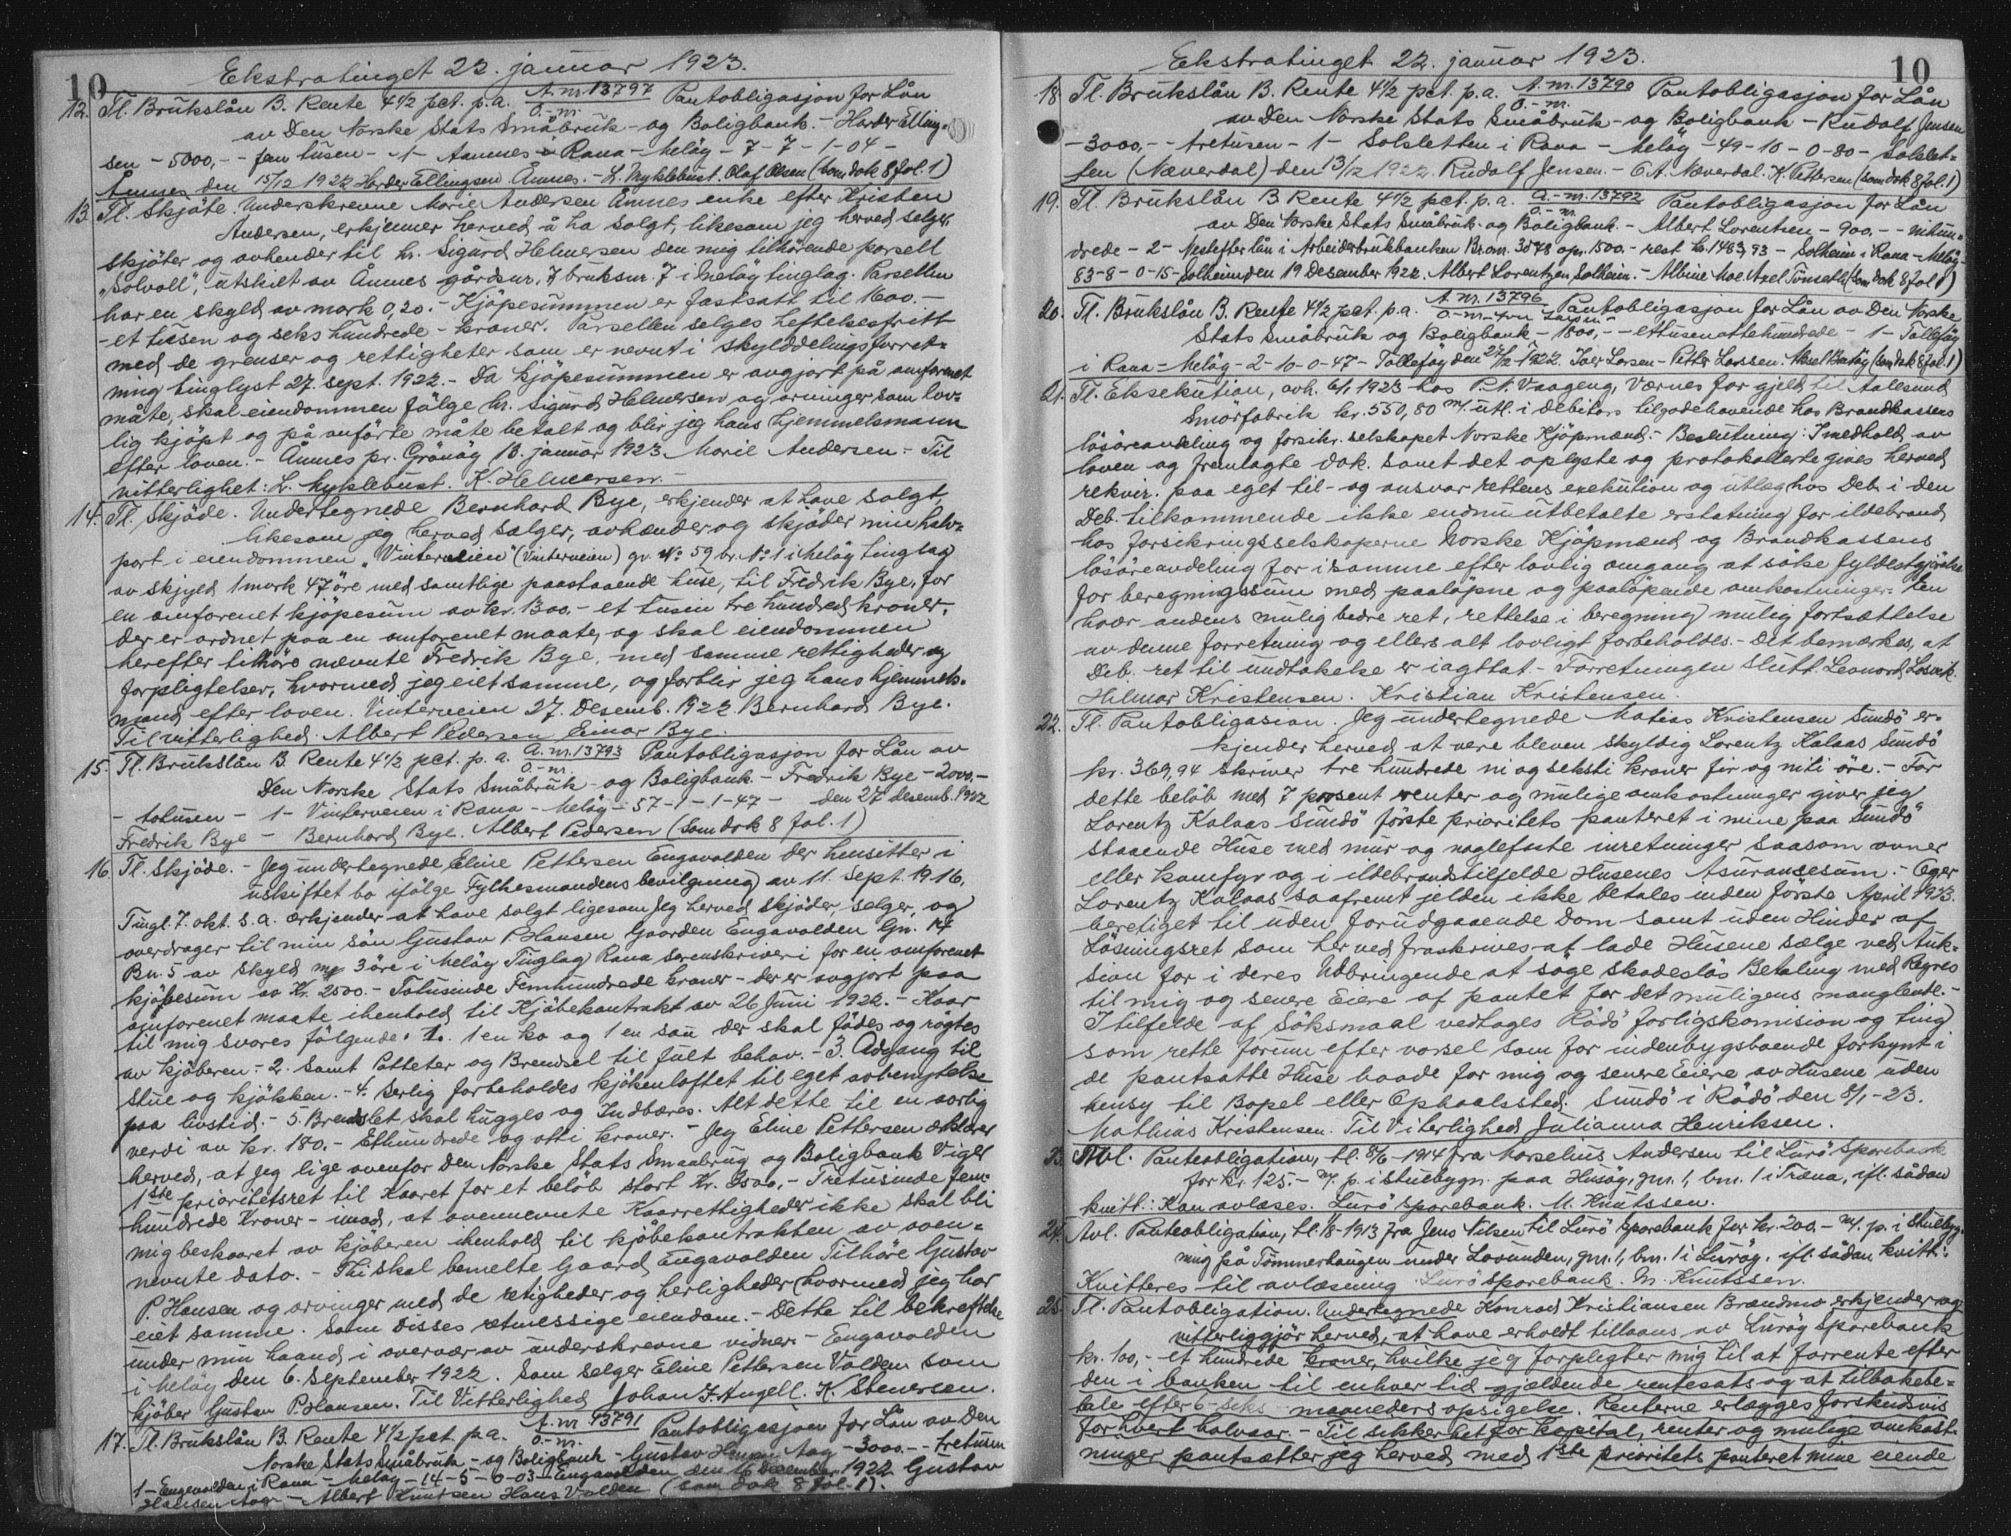 10
Ekstratinget 22. januar 1923.
12. Tl. Brukslån B. Rente 4 1/2 pct. p.a. A.nr. 13797 Pantobligasjon for Lån
O.-nr.
av Den Norske Stats Småbruk- og Boligbank. - Harder Elling-
sen - 5000,- - fem tusen - 1 - Aannes Rana - Meløy - 7 - 7 - 1-04 -
Ånnes den 15/12 1922 Harder Ellingsen Ånnes. - L. Myklebust. Olaf Olsen (som dok 8 fol. 1)
13. Tl. Skjøte. Underskrevne Marie Andersen Ånnes enke efter Kristen
Andersen, erkjenner herved å ha solgt, likesom jeg herved selger,
skjøter og avhender til hr. Sigurd Helmersen den mig tilhørende parsell
"Solvoll", utskilt av Ånnes gårdsnr. 7 bruksnr. 7 i Meløy tinglag. Parsellen
har en skyld av mark 0,20. - Kjøpesummen er fastsatt til 1600.-
-et tusen og seks hundrede - kroner. Parsellen selges heftelsesfritt
med de grenser og rettigheter som er nevnt i skylddelingsforret-
ning tinglyst 27. sept. 1922. - Da kjøpesummen er avgjort på omforenet
måte, skal eiendommen følge hr. Sigurd Helmersen og arvinger som lov-
lig kjøpt og på anførte måte betalt og blir jeg hans hjemmelsmann
efter loven. - Ånnes pr. Grønøy 13. januar 1923 Marie Andersen - Til
vitterlighet: L. Myklebust. K. Helmersen.
14. Tl. Skjøde. Undertegnede Bernhard Bye, erkjender at have solgt
likesom jeg herved sælger, avhænder og skjøder min halv-
part i eiendommen "Vinterveien" (Vinterveien) gr. No. 59 br. No 1 i Meløy tinglag
av skyld 1 mark 47 øre med samtlige paastaaende huse, til Fredrik Bye, for
en omforenet kjøpesum av kr. 1300.- et tusin tre hundred kroner.
der er ordnet paa en omforenet maate, og skal eiendommen
herefter tilhøre nævnte Fredrik Bye, med samme rettigheder og
forpligtelser, hvormed jeg eiet samme, og forblir jeg hans hjemmels-
mand efter loven. Vinterveien 27. Desemb. 1922 Bernhard Bye.
Til vitterlighed. Albert Pedersen Einar Bye.
15. Tl. Brukslån B. Rente 4 1/2 pct. p. a. A.nr. 13793 Pantobligasjon for Lån av
O.-nr.
Den Norske Stats Småbruk- og Boligbank. - Fredrik Bye - 2000,-
- totusen - 1 - Vinterveien i Rana - Meløy - 57 - 1 - 1-47 - den 27 desemb. 1922
Fredrik Bye - Bernhard Bye. Albert Pedersen (Som dok 8 fol. 1)
16. Tl. Skjøde. - Jeg undertegnede Eline Pettersen Engavolden der hensitter i
uskiftet bo ifølge Fylkesmandens bevilgning av 11. Sept. 1916,
Tingl. 7. okt. s. a. erkjender at have solgt ligesom jeg herved skjøder, selger, og
overdrager til min søn Gustav P. Hansen Gaarden Engavolden Gn. 14
Bn. 5 av skyld 3 øre i Meløy Tinglag Rana sorenskriveri for en omforenet
kjøbesum av Kr. 2500.- Totusinde Femhundrede kroner - der er avgjort paa
omforenet maate ihenhold til Kjøbekontrakt av 26 Juni 1922. - Kaar
til mig svares følgende: 1. 1 en ko og 1 en sau der skal fødes og røgtes
av kjøberen - 2. samt Potteter og Brendsel til fult behov. - 3. Adgang til
stue og kjøkken. - 4. Serlig forbeholdes kjøkenloftet til eget avbenyttelse
paa livstid. - 5. Brendslet skal hugges og Indbæres. Alt dette til en aarlig
verdi av kr. 180.- Ethundrede og otti kroner. - Jeg Eline Pettersen erklærer
herved, at jeg lige ovenfor Den Norske Stats Smaabrug og Boligbank Viger
1ste prioritetsret til Kaaret for et beløb stort Kr. 3500.- Tretusinde fem-
hundrede Kroner - imod, at ovennevnte Kaarrettigheder ikke skal bli
mig beskaaret av kjøberen ihenhold til kjøbekontrakten av oven-
nevnte dato. - Thi skal bemelte Gaard Engavolden Tilhøre Gustav
P. Hansen og arvinger med de retigheder og herligheder hvormed jeg har
eiet samme. Som disses retmessige eiendom. - Dette til bekreftelse
under min haand i overvær av underskrevne vidner - Engavolden
i Meløy den 6. September 1922. Som selger Eline Pettersen Volden Som
kjøber Gustav P. Hansen. Til Vitterlighed Johan J. Angell. K. Stenersen.
17. Tl. Brukslån B. Rente 4 1/2 pct p.a. A.nr. 13791 Pantobligasjon for Lån av Den
O.-nr.
Norske Stats Småbruk - og Boligbank - Gustav Hansen Aag - 3000.- - tretusen
1 - Engavolden i Rana - Meløy - 14 - 5 - 0-03 - Engavolden den 16 December 1922 Gustav
Hansen Aag - Albert Knutsen Hans Volden (som dok 8 fol. 1).
Ekstratinget 22. januar 1923.
10
18. Tl. Brukslån B. Rente 4 1/2 pct. p.a. A.nr. 13790 Pantobligasjon for Lån
O.-nr.
av Den Norske Stats Småbruk- og Boligbank - Rudolf Jensen
- 3000,- - tretusen - 1 - Solsletten i Rana - Meløy - 49 - 10 - 0-80 - Solslet-
ten (Neverdal) den 13/12 1922. Rudolf Jensen. - O.A. Neverdal. K. Pettersen (som dok 8 fol. 1)
19. Tl. Brukslån B Rente 4 1/2 pct. p.a. A.-nr. 13792 Pantobligasjon for Lån
O.-nr.
av Den Norske Stats Småbruk- og Boligbank. - Albert Lorentzen - 900,- - nihun-
drede - 2 - Nestefter lån i Arbeiderbrukbanken Br.nr. 3878 opr. 1500.- rest kr. 1483,93 - Solheim i Rana - Meløy
83-8-0-15 - Solheim den 19 Desember 1922. Albert Lorentzen Solheim. - Albine Moe. Axel Tønseth (som dok 8 fol 1)
20. Tl. Brukslån B. Rente 4 1/2 pct. p.a. A.nr. 13796 Pantobligasjon for Lån av Den Norske
O.-nr. Iver Larsen
Stats Småbruk og Boligbank - 1800,- - ettusenottehundrede - 1 - Tolleføy
i Rana - Meløy - 2 - 10 - 0-47 - Tolleføy den 27/12 1922. Iver Larsen - Petter Larssen. (som dok 8 fol. 1)
21. Tl. Eksekution, avh. 6/1 1923 hos P.N. Vaageng, Værnes for gjeld til Aalesund
Smørfabrik kr. 550,80 m/. utl. i debitors tilgodehavende hos Brandkassens
løsøreavdeling og forsikr. selskapet Norske Kjøpmænd. - Beslutning: I medhold av
loven og fremlagte dok. samt det oplyste og protokollerte gives herved
rekvir. paa eget til- og ansvar rettens exekution og utlæg hos Deb. i den
Deb. tilkommende ikke endnu utbetalte erstatning for ildebrand
hos forsikringsselskaperne Norske Kjøpmænd og Brandkassens
løsøreavdeling for i samme efter lovlig omgang at søke fyldestgjørelse
for beregningssum med paaløpne og paaløpende omkostninger. En
hvær andens mulig bedre ret, rettelse i beregning mulig fortsættelse
av denne forretning og ellers alt lovligt forbeholdes. - Det bemerkes, at
Deb. ret til undtakelse er iagttat - Forretningen slutt. Leonard Løsvik.
Hilmar Kristensen. Kristian Kristensen.
22. Tl. Pantobligasion. Jeg undertegnede Matias Kristensen Sundø er-
kjender herved at vere bleven skyldig Lorentz Kalaas Sundø
kr. 369,94 skriver tre hundrede ni og seksti kroner fir og niti øre. - For
dette beløb med 7 prosent renter og mulige omkostninger giver jeg
Lorentz Kalaas Sundø første prioritets panteret i mine paa Sundø
staaende Huse med mur og naglefaste inretninger saasom ovner
eller komfyr og i ildebrandstilfelde Husenes Asuransesum. - Eger
Lorentz Kalaas saafremt jelden ikke betales inden første April 1923.
beretiget til uden forudgaaende Dom samt uden Hinder af
Løsningsret som herved fraskrives at lade Husene sælge ved Auk-
sion for i deres Udbringende at søge skadesløs Betaling med Regres
til mig og senere Eiere af pantet for det muligens manglende. -
I tilfelde af Søksmaal vedtages Rødø forligskomision og ting
som rette forum efter varsel som for indenbygsboende forkynt i
de pantsatte Huse baade for mig og senere Eiere av Husene uden
hensy til Bopel eller Ophaalssted. Sundø i Rødø den 8/1-23.
Mathias Kristensen. Til Viterlighed Julianna Henriksen.
23. Avl. Panteobligation, tl. 8/6-1914 fra Marselius Andersen til Lurø Sparebank
for kr. 125.- m/. p. i stuebygn. paa Husøy, gnr. 1, bnr. 1 i Træna, ifl. sådan
kvitt: Kan avlæses. Lurø sparebank. M. Knutssen.
24. Avl. Panteobligation, tl. 1/8-1913 fra Jens Nilsen til Lurø Sparebank for kr. 200.- m/. p. i stuebyg-
ning på Tømmerhaugen under Lovunden, gnr. 1, bnr. 1 i Lurøy. ifl. sådan kvitt:
Kvitteres til avlæsning Lurø sparebank. M. Knutssen.
25. Tl. Pantobligation. Undertegnede Konrad Kristiansen Brændmo erkjender og
vitterliggjør herved, at have erholdt tillaans av Lurøy Sparebank
kr. 100,- et hundrede kroner, hvilke jeg forpligter mig til at forrente efter
den i banken til enhver tid gjældende rentesats og at tilbakebe-
tale efter 6-seks maaneders opsigelse. Renterne erlægges forskudsvis
for hvert halvaar. - Til sikkerhet for kapital, renter og mulige omkost-
ninger pantsætter jeg herved med 1ste prioritets panteret mine eiende